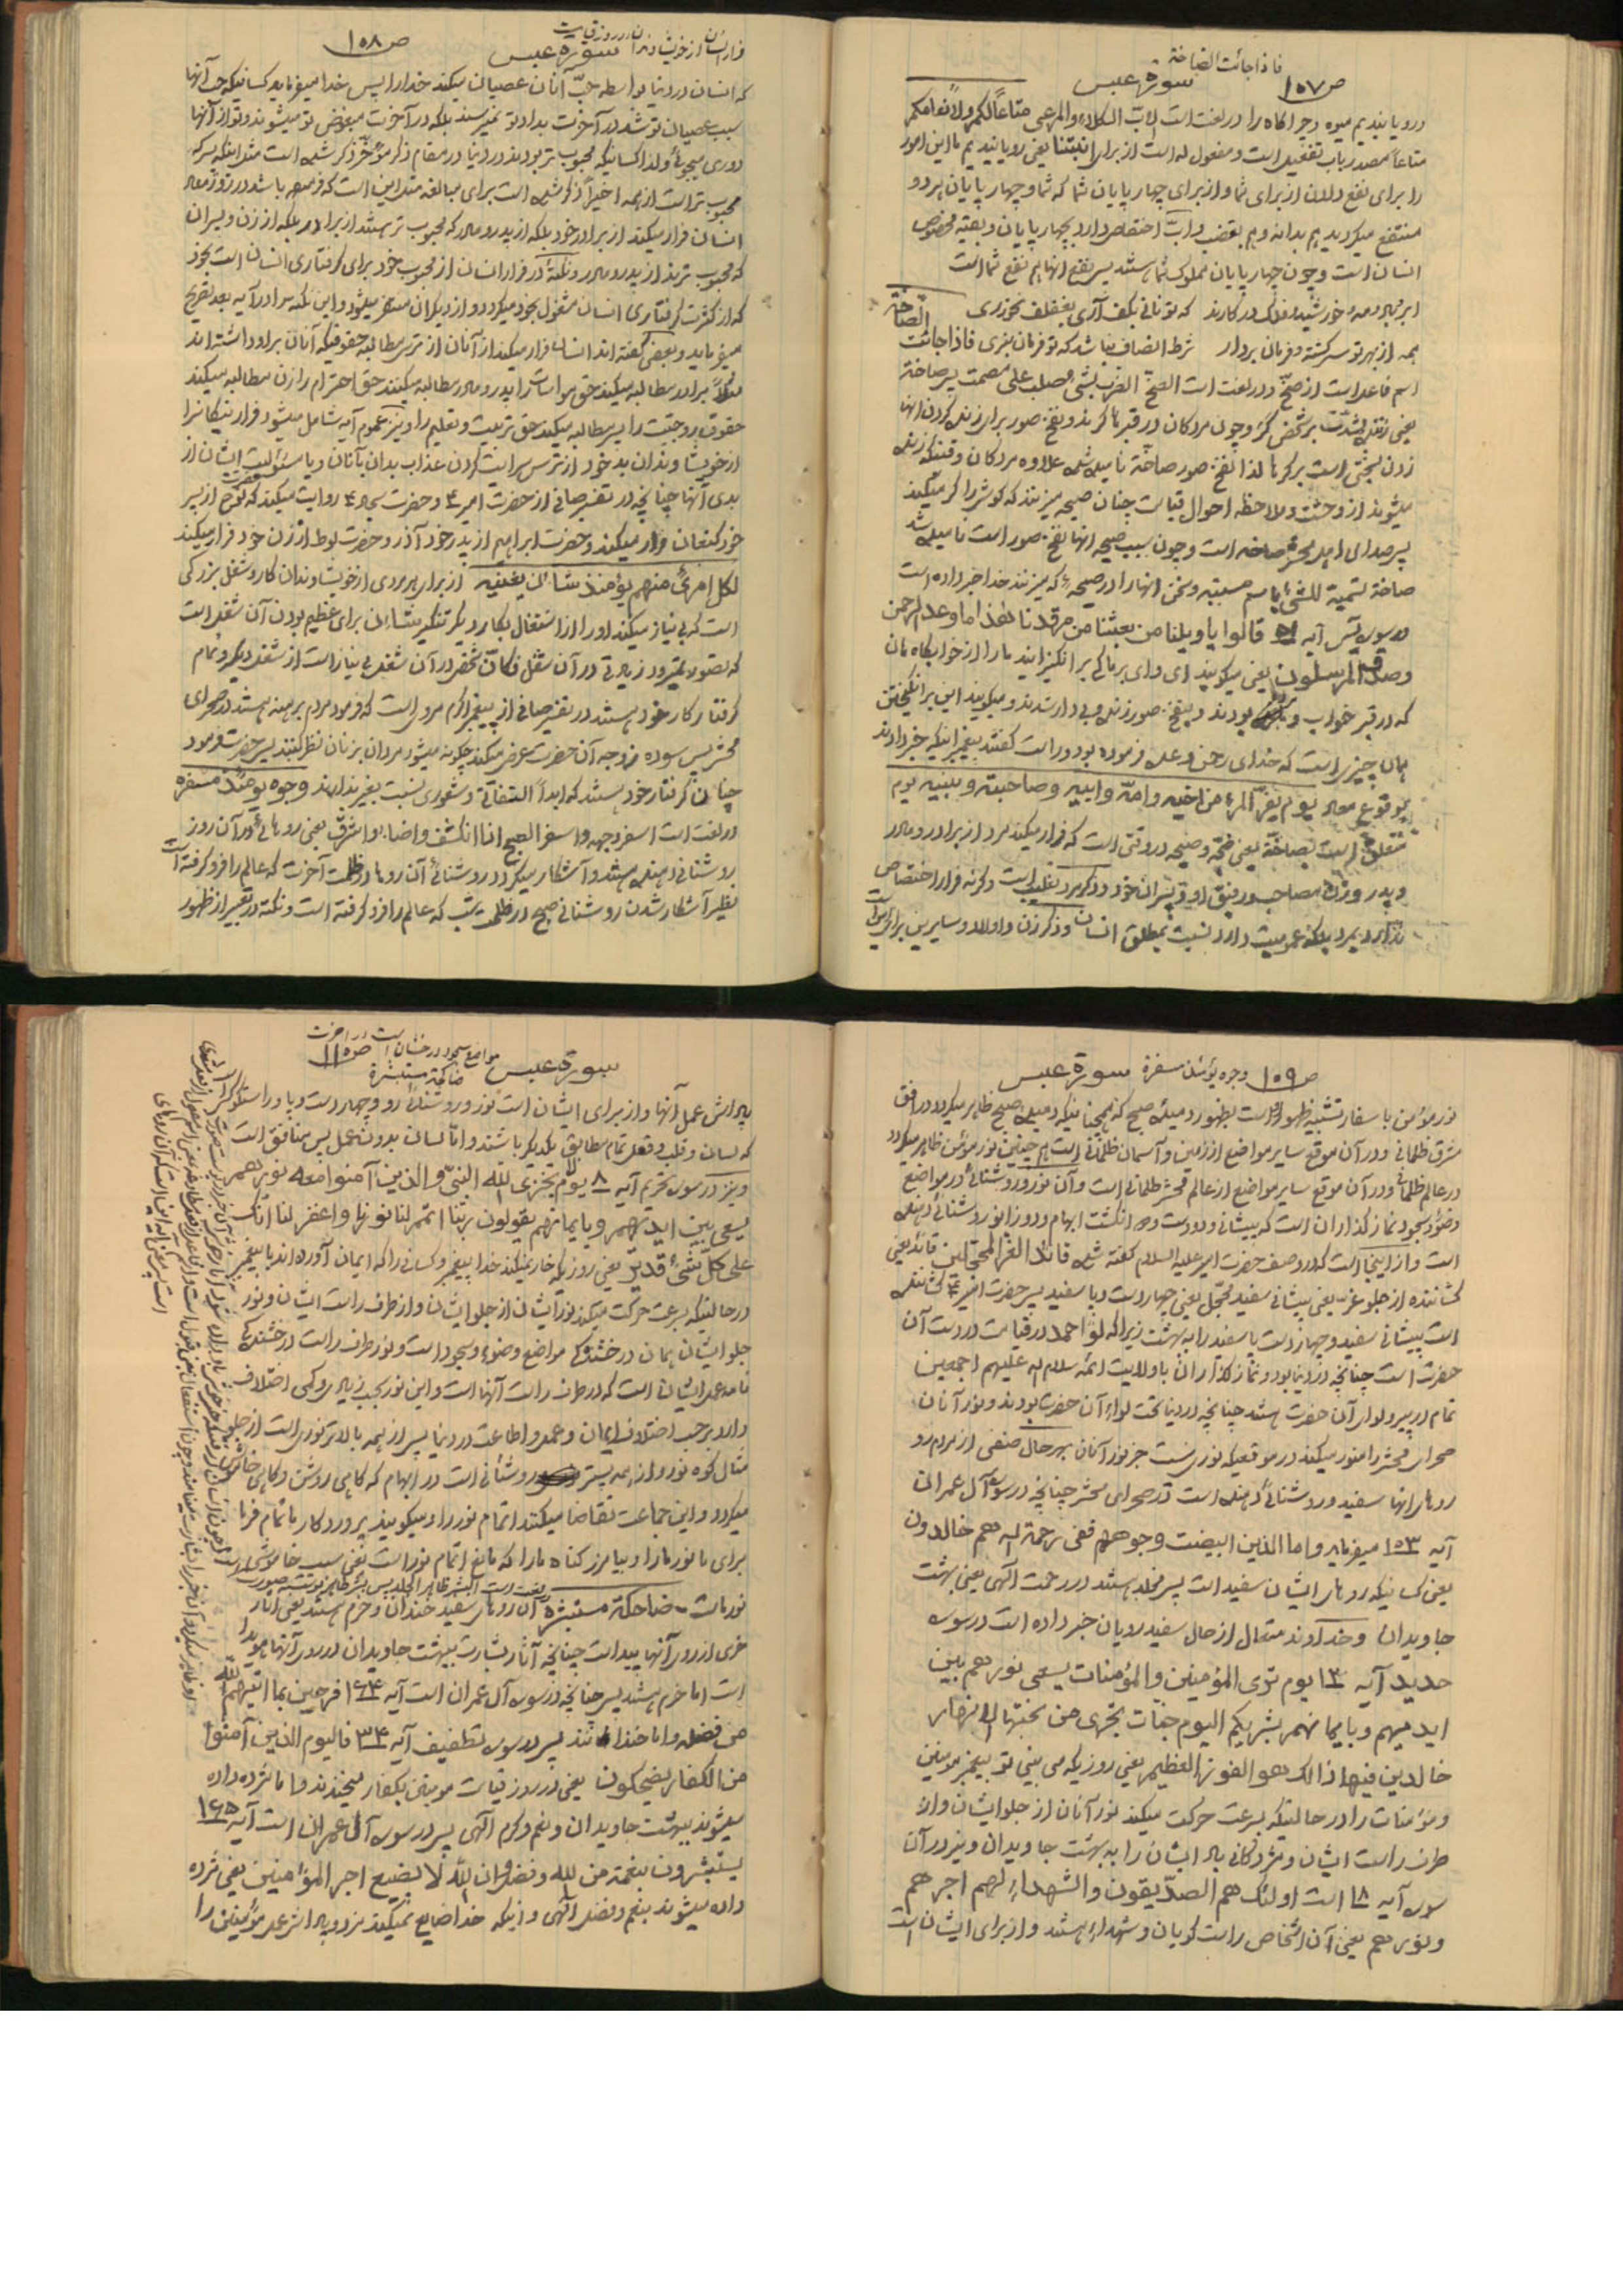 فاذا جائت الصاخة
ص ۱۰۷ سورة عبس
و رویانیدیم میوه و چراگاه را در لغت است الابّ الکلاء والمرعی متاعاً لکم ولانعامکم
متاعاً مصدر باب تفعیل است و مفعول له است از برای انبتنا یعنی رویانیدیم ما این امور
را برای نفع دادن از برای شما و از برای چهارپایان شما که شما و چهارپایان هر دو
منتفع میگردید هم بدانه و هم بقضب و ابّ اختصاص دارد بچهارپایان و بقیه مخصوص
انسان است و چون چهارپایان مملوک شما هستند پس نفع آنها هم نفع شما است
ابر و باد و مه و خورشید و فلک در کارند که تو نانی بکف آری بغفلت نخوری
همه از بهر تو سرگشته و فرمان بردار شرط انصاف نباشد که تو فرمان نبری فاذا جائت الصاخّة
اسم فاعل است از صخّ و در لغت است الصخّ الضرب بشیء صلب علی مصمت پس صاخة
یعنی زننده بشدّت بر شخص کرّ و چون مردگان در قبر ها کرند و نفخ صور برای زنده کردن آنها
زدن بسختی است بر کرها لذا نفخ صور صاخّة نامیده شده علاوه مردگان وقتیکه زنده
میشوند از وحشت و ملاحظه احوال قیامت چنان صیحه میزنند که گوشها را کر میکند
پس صدای اهل محشر صاخه است و چون سبب صیحه آنها نفخ صور است نامیده شد
صاخة تسمیة للشیء باسم مسببه و سخن آنها را در صیحهء که میزنند خدا خبر داده است
در سوره یس آیه ۵۲ قالوا یا ویلنا من بعثنا من مرقدنا هذا ما وعد الرحمن
وصدق المرسلون یعنی میگویند ای وای بر ما کی برانگیزانید ما را از خوابگاه مان
که در قبر خواب و بودند و بنفخ صور زنده و بیدار شدند و میگویند این برانگیختن
همان چیزی است که خدای رحمن وعده فرموده بود و راست گفتند پیغمبرانیکه خبر دادند
بوقوع معاد یوم یفرّ المرء من اخیه وامّه وابیه وصاحبته وبنیه یوم
متعلق است بصاخّة یعنی ضجّه و صیحه در وقتی است که فرار میکند مرد از برادر و مادر
و پدر و زن مصاحب و رفیق او و پسران خود و ذکر مرد تغلیب است وگرنه فرار اختصاص
ندارد بمرد بلکه عمومیت دارد نسبت بمطلق انسان و ذکر زن و اولاد و سایرین برای این است
فرار انسان از خویشاوندان در روز قیامت
سورة عبس ص ۱۰۸
که انسان در دنیا بواسطه حبّ آنان عصیان میکند خدا را پس خدا میفرماید کسانیکه حبّ آنها
سبب عصیان تو شد در آخرت بداد تو نمیرسند بلکه در آخرت مبغوض تو میشوند و تو از آنها
دوری میجوئی و لذا کسانیکه محبوب تر بودند در دنیا در مقام ذکر مؤخّر ذکر شده است مثل اینکه پسر که
محبوب تر است از همه اخیراً ذکر شده است برای مبالغه مثل این است که فرموده باشد در روز معاد
انسان فرار میکند از برادر خود بلکه از پدر و مادر که محبوب تر هستند از برادر بلکه از زن و پسران
که محبوب ترند از پدر و مادر و نکتهٔ در فرار انسان از محبوب خود برای گرفتاری انسان است بخود
که از کثرت گرفتاری انسان مشغول بخود میگردد و از دیگران متنفر میشود و این نکته را در آیه بعد تصریح
میفرماید و بعضی گفته اند انسان فرار میکند از آنان از ترس مطالبه حقوقیکه آنان بر او داشته اند
مثلاً برادر مطالبه میکند حق مواسات را پدر و مادر مطالبه میکنند حق احترام را زن مطالبه میکند
حقوق زوجیّت را پسر مطالبه میکند حق تربیت و تعلیم را و نیز عموم آیه شامل میشود فرار نیکان را
از خویشاوندان بد خود از ترس سرایت کردن عذاب بدان بآنان و یا مسئولیت ایشان از
بدی آنها چنانچه در تفسیر صافی از حضرت امیر ع و حضرت سجاد ع روایت میکند که حضرت نوح از پسر
خود کنعان فرار میکند و حضرت ابراهیم از پدر خود آذر و حضرت لوط از زن خود فرار میکند
لکل امرئ منهم یومئذ شان یغنیه از برای هر مردی از خویشاوندان کار و شغل بزرگی
است که بی نیاز میکند او را از اشتغال بکار دیگر تنکیر شان برای عظیم بودن آن شغل است
که تصور نمیرود زیادتی در آن شغل فکانّ شخص در آن شغل بی نیاز است از شغل دیگر و تمام
گرفتار کار خود هستند در تفسیر صافی از پیغمبر اکرم مروی است که فرمود مردم برهنه هستند در صحرای
محشر پس سوده زوجه آن حضرت عرض میکند چگونه میشود مردان بزنان نظر کنند پس حضرت فرمود
چنان گرفتار خود هستند که ابداً التفاتی و شعوری نسبت بغیر ندارند وجوه یومئذ مسفرة
در لغت است اسفر وجهه واسفر الصبح اذا انکشف واضاء واشرق یعنی روهائی در آن روز
روشنائی دهنده هستند و آشکار میگردد روشنائی آن روها در ظلمت آخرت که عالم را فرو گرفته است
نظیر آشکار شدن روشنائی صبح در ظلمت شب که عالم را فرو گرفته است و نکته در تعبیر از ظهور
ص ۱۰۹ وجوه یومئذ مسفرة سورة عبس
نور مؤمن باسفار تشبیه ظهور او است بظهور دمیدن صبح که همچنانکه دمیدن صبح ظاهر میگردد در افق
مشرق ظلمانی و در آن موقع سایر مواضع از زمین و آسمان ظلمانی است همچنین نور مؤمن ظاهر میگردد
در عالم ظلمانی و در آن موقع سایر مواضع از عالم محشر ظلمانی است و آن نور و روشنائی در مواضع
وضوء و سجود نماز گذاران است که پیشانی و دو دست و دو انگشت ابهام و دو زانو روشنائی دهنده
است و از اینجا است که در وصف حضرت امیر علیه السلام گفته شده قائد الغر المحجلین قائد یعنی
کشاننده از جلو غرّ یعنی پیشانی سفید محجّل یعنی چهار دست و پا سفید پس حضرت امیر ع کشاننده
است پیشانی سفید و چهار دست پا سفید را به بهشت زیرا که لواء احمد در قیامت در دست آن
حضرت است چنانچه در دنیا بود و نماز گذاران با ولایت ائمه سلام الله علیهم اجمعین
تمام در پیرو لوای آن حضرت هستند چنانچه در دنیا تحت لواء آن حضرت بودند و نور آنان
صحرای محشر را منور میکند در موقعیکه نوری نیست جز نور آنان بهر حال صنفی از مردم رو
روهای آنها سفید و روشنائی دهنده است در صحرای محشر چنانچه در سوره آل عمران
آیه ۱۰۳ میفرماید واما الذین ابیضت وجوههم ففی رحمة الله هم خالدون
یعنی کسانیکه روهای ایشان سفید است پس مخلد هستند در رحمت الهی یعنی بهشت
جاویدان و خداوند متعال از حال سفید رویان خبر داده است در سوره
حدید آیه ۱۲ یوم تری المؤمنین والمؤمنات یسعی نورهم بین
ایدیهم وبایمانهم بشریکم الیوم جنات تجری من تحتها الانهار
خالدین فیها ذالک هو الفوز العظیم یعنی روزیکه می بینی تو ای پیغمبر مومنین
و مؤمنات را در حالتیکه بسرعت حرکت میکند نور آنان از جلو ایشان و از
طرف راست ایشان و مژدگانی باد ایشان را به بهشت جاویدان و نیز در آن
سوره آیه ۱۸ است اولئک هم الصدّیقون والشهداء لهم اجرهم
ونورهم یعنی آن اشخاص راست گویان و شهداء هستند و از برای ایشان است
مواضع سجود درخشان است در آخرت
سورة عبس ضاحکة مستبشرة ص ۱۱۰
پاداش عمل آنها و از برای ایشان است نور و روشنائی رو و چهار دست و پا و راستگو کسی است
که لسان و قلب و فعلش تمام مطابق یکدیگر باشند و امّا لسان بدون عمل پس منافق است
و نیز در سوره تحریم آیه ۸ یوم لا یخزی الله النبیّ والذین آمنوا معه نورهم
یسعی بین ایدیهم وبایمانهم یقولون ربّنا اتمم لنا نورنا واغفر لنا انّک
علی کلّ شیء قدیرٌ یعنی روزیکه خار نمیکند خدا پیغمبر و کسانی را که ایمان آورده اند با پیغمبر
در حالتیکه بسرعت حرکت میکند نور ایشان از جلو ایشان و از طرف راست ایشان و نور
جلو ایشان همان درخشندگی مواضع وضوء و سجود است و نور طرف راست درخشندگی
نامه عمل ایشان است که در طرف راست آنها است و این نور بحسب زیادی و کمی اختلاف
دارد برحسب اختلاف ایمان و عمل و اطاعت در دنیا پس از همه بالاتر نوری است از جلو
مثال کوه نور و از همه پست تر روشنائی است در ابهام که گاهی روشن و گاهی خاموش
میگردد و این جماعت تقاضا میکنند اتمام نور را و میگویند پروردگار ما تمام فرما
برای ما نور ما را و بیامرز گناه ما را که مانع اتمام نور است یعنی سبب خاموشی
نور ماست ـ ضاحکة مستبشرة آن روهای سفید خندان و خرم هستند یعنی آثار
خرمی از روی آنها پیدا است چنانچه آثار بشارت ببهشت جاویدان در روی آنها هویدا
است اما خرم هستند پس چنانچه در سوره آل عمران است آیه ۱۶۴ فرحین بما آتیهم الله
من فضله واما خندانند پس در سوره تطفیف آیه ۳۴ فالیوم الذین آمنوا
من الکفار یضحکون یعنی در روز قیامت مومنین بکفار میخندند و اما مژده داده
میشوند ببهشت جاویدان و نعم و کرم الهی پس در سوره آل عمران است آیه ۱۶۵
یستبشرون بنعمة من الله وفضل وان الله لا یضیع اجر المؤمنین یعنی مژده
داده میشوند بنعم و فضل الهی و اینکه خدا ضایع نمیکند مزد و پاداش عمل مؤمنین را